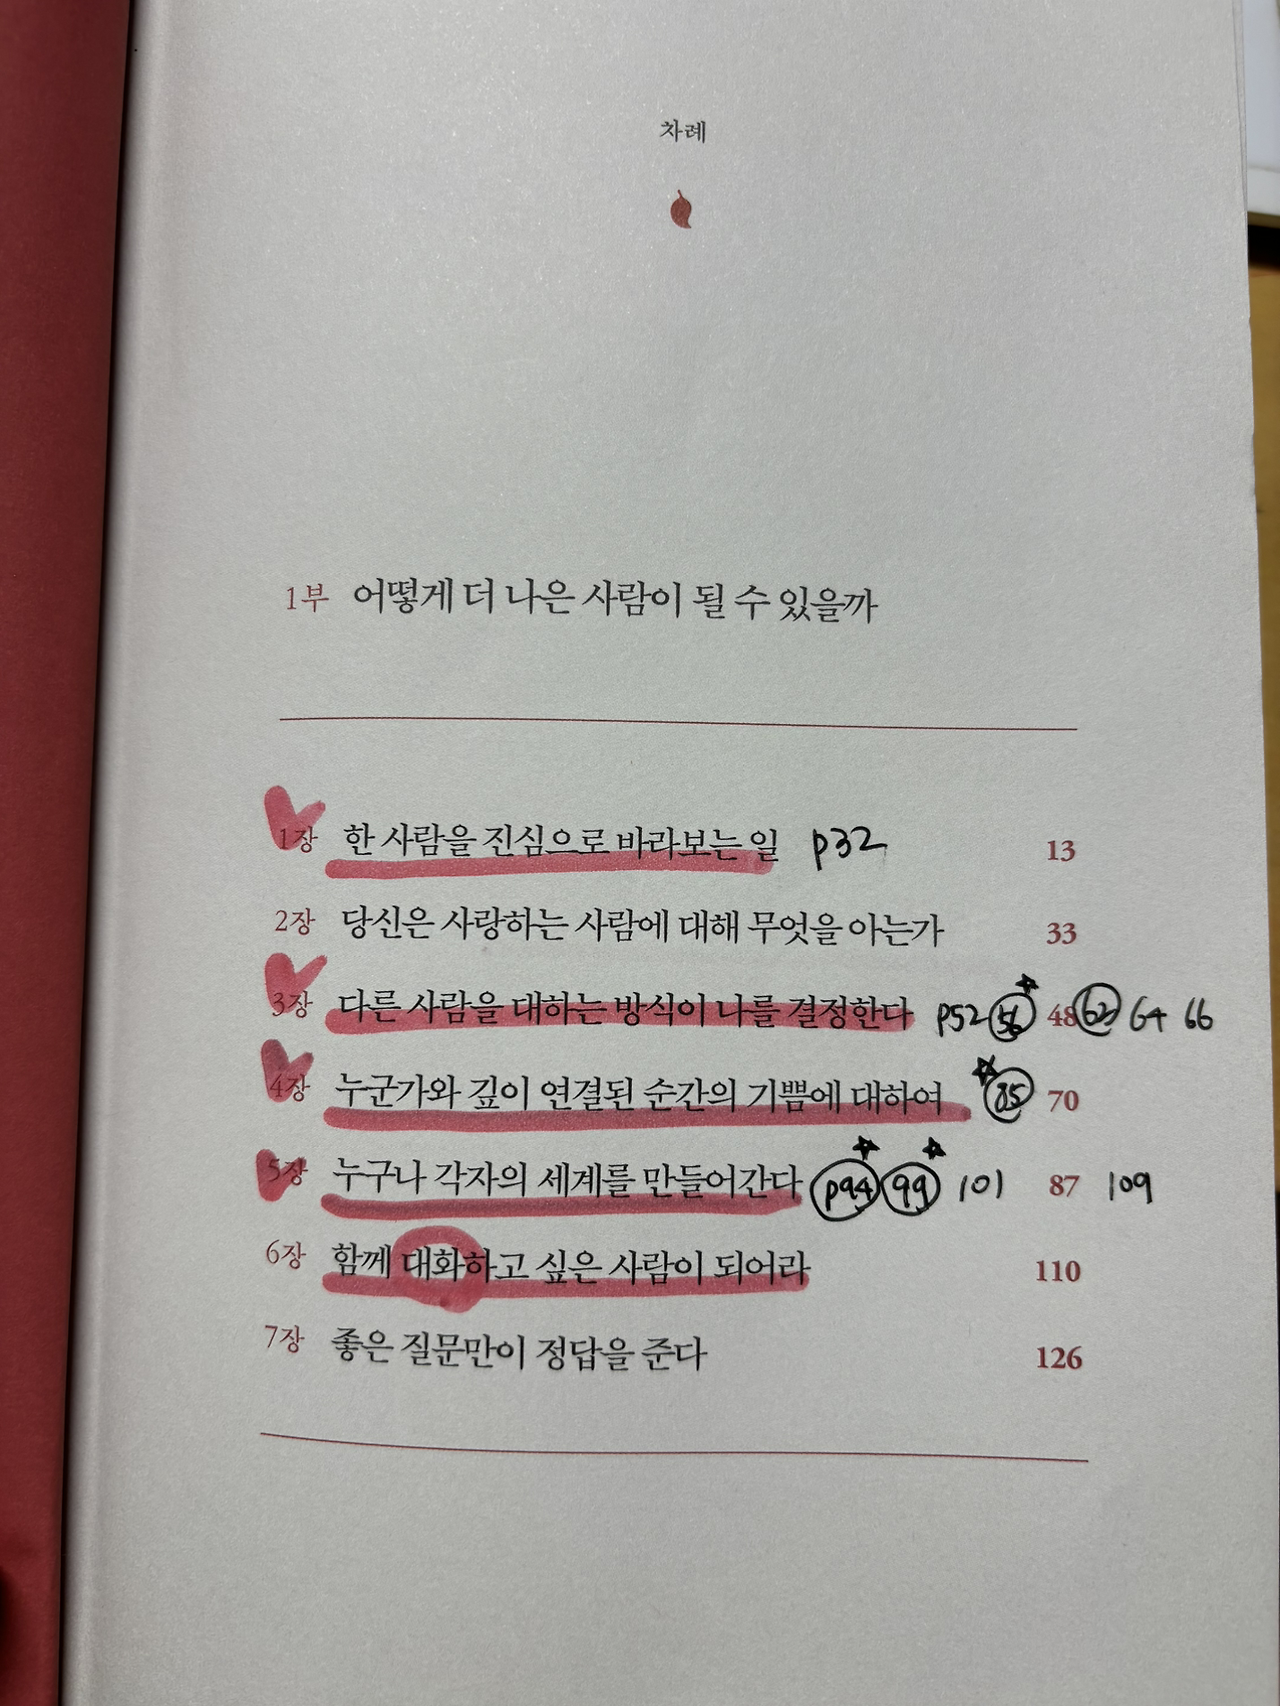 차례
1부 어떻게 더 나은 사람이 될 수 있을까
1장 한 사람을 진심으로 바라보는 일 p32 13
2장 당신은 사랑하는 사람에 대해 무엇을 아는가 33
3장 다른 사람을 대하는 방식이 나를 결정한다 p52 56 48 62 64 66
4장 누군가와 깊이 연결된 순간의 기쁨에 대하여 85 70
5장 누구나 각자의 세계를 만들어간다 p94 99 101 87 109
6장 함께 대화하고 싶은 사람이 되어라 110
7장 좋은 질문만이 정답을 준다 126